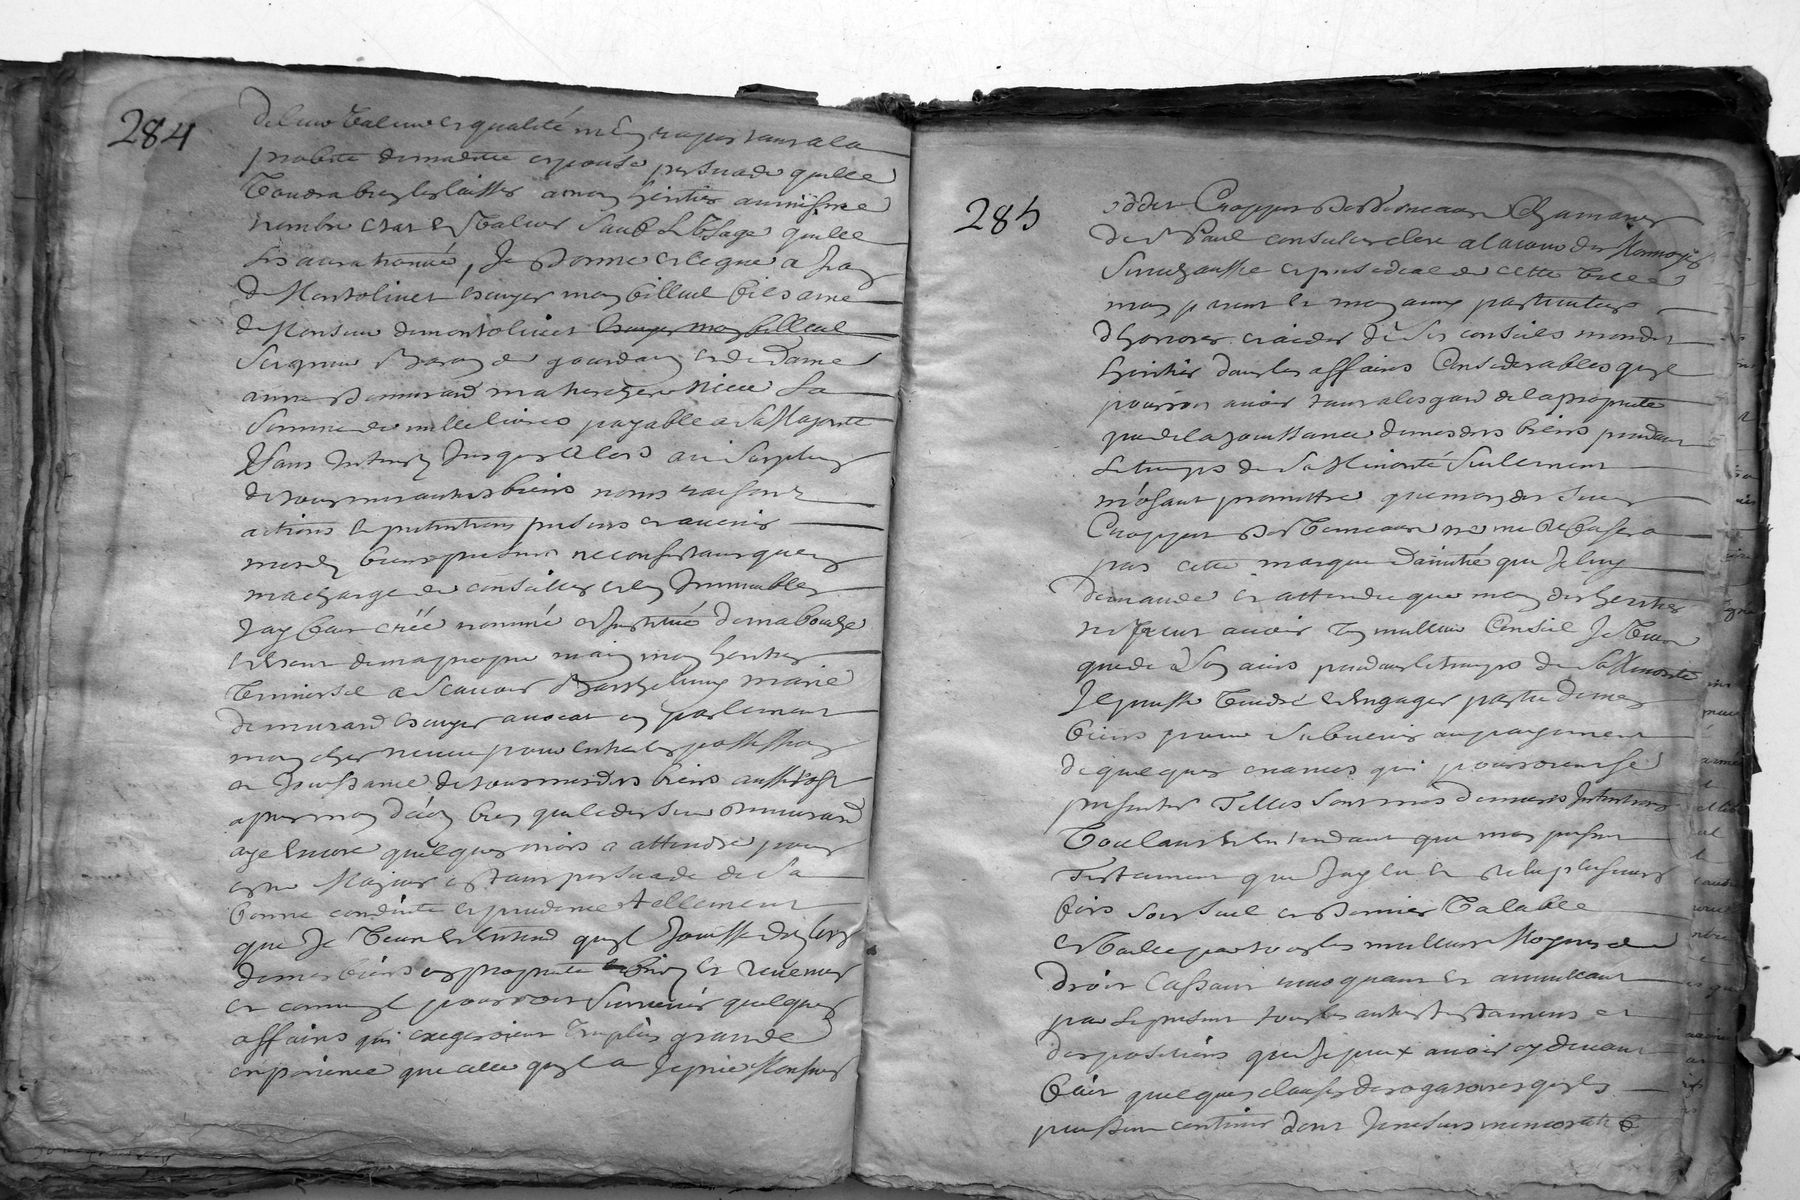 284
de leur valeur et qualité m'en raportant a la
probité de madite espouse persuadé quelle
voudra bien les laisser a mon heritier au mesme
nombre estat et valeur sauf l'usage quelle
les aura trouvé, Je donne et legue a
de Montolivet escuyer mon filleul fils ainé
de Monsieur de montolivet escuyer mon filleul
Seigneur Baron de gourdan et de Dame
anne Demurard ma tres chere niece la
Somme de mille livres payable a Sa Majorité
Sans Interest Jusques alors au Surplus
de tous mes autres biens noms raisons
actions et pretentions presens et avenir
mesd biens presens ne consistant quen
ma charge de conseiller et en Immeubles
Jay fait créé nommé et Institué de ma bouche
et escrit de ma propre main mon heritier
universel a Scavoir Barthelemy marie
demurard escuyer avocat en parlement
mon cher neveu pour entrer en possession
et Jouissance de tous mesdits biens aussitost
apres mon décés bien que ledit Sieur Demurard
aye encore quelques mois a attendre pour
estre Majeur estant persuadé de Sa
bonne conduite et prudence tellement
que Je veux et entend quil Jouisse
de mes biens en proprieté et revenus
et comme il pourroit survenir quelques
affaires qui exigeroient une plus grande
experience que celle quil a Je prie Monsieur
285
Croppet De Varissan Chamarier
de St Paul conseiller clerc a la cour des Monnoyes
Senechaussée et presidial de cette ville
mon parent et mon amy particulier
dhonorer et aider de Ses conseils mondit
heritier dans les affaires Considerables quil
pourroit avoir tant a lesgard de la proprieté
que de la Jouissance de mesdits biens pendant
le temps de Sa Minorité Seulement
m'osant promettre que mondit Sieur
Croppet ne me refusera
pas cette marque damitié que Je luy
demande et attendu que mondit heritier
ne peut avoir un meilleur Conseil Je veux
que de Son avis pendant le temps de Sa Minorité
Il puisse vendre et engager partie de mes
biens pour Subvenir au payement
de quelques creances qui pourroient se
presenter Telles sont mes dernieres Intentions
voulant et entendant que mon present
Testament que Jay lu et relu plusieurs
fois soit seul et dernier valable
et vaille par tous les meilleurs Moyens de
droit Cassant revoquant et annullant
par le present tous les autres testamens et
dispositions que Je peux avoir cy devant
fait quelques clauses derogatoires quils
puissent contenir dont Je ne suis memoratif